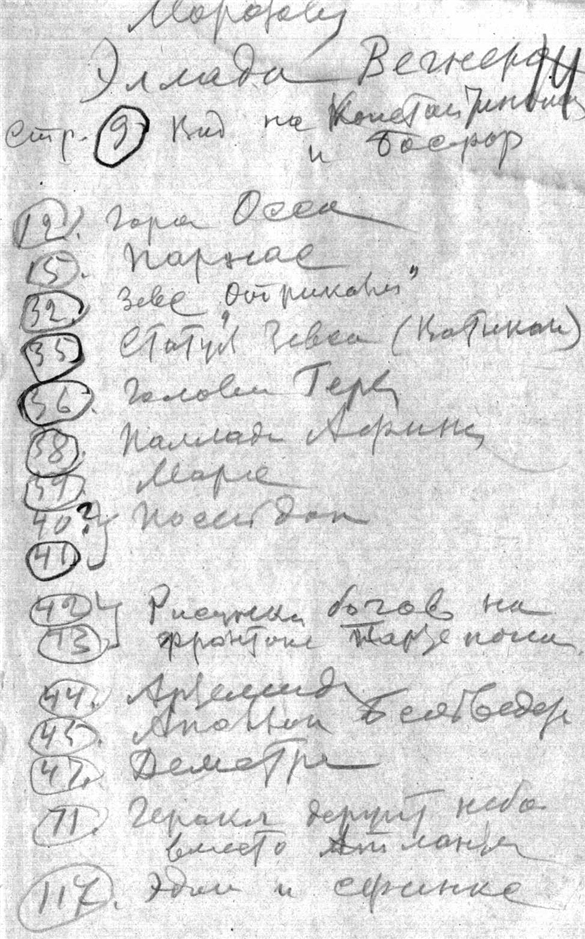 Морозову
Эллада Вегнера
стр. 9 Вид на Константинополь
и Босфор
12. гора Осса
15. Парнас
32. Зевс "Отриколи"
35 статуя Зевса (Ватикан)
36. головы Геры
38. Паллада Афина
39. Марс
40? Посейдон
41
42 Рисунки богов на
43 фронтоне Парфенона
44. Артемида
45. Аполлон Бельведер
47. Деметра
71. Геракл держит небо
вместо Атланта
117. Эдип и сфинкс